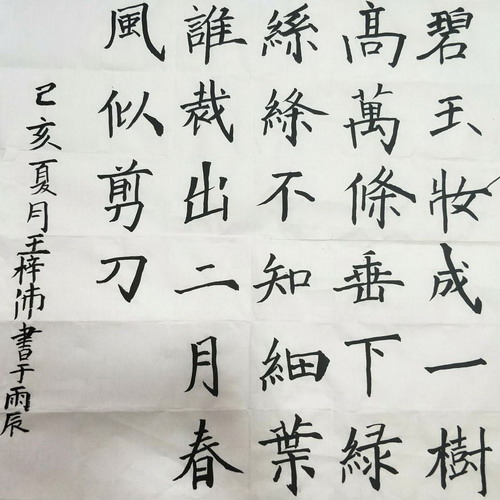 碧玉妝成一樹
高萬條垂下綠
絲絛不知細葉
誰裁出二月春
風似剪刀
己亥夏月王梓沛書于雨辰